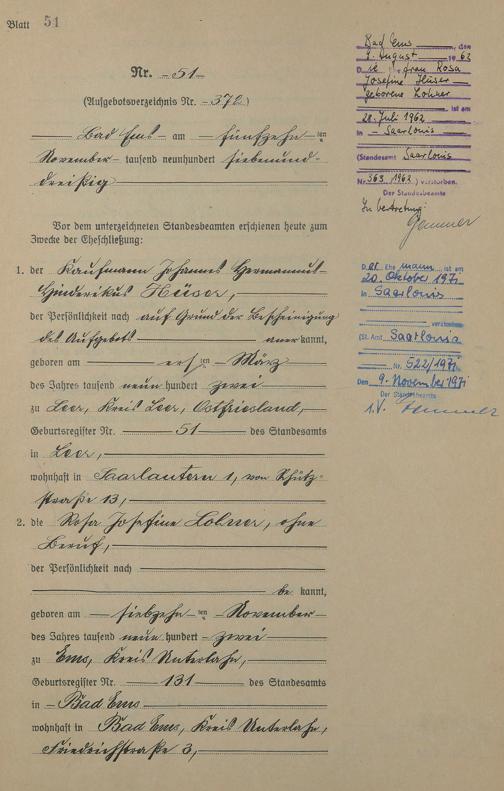 Blatt 51
Nr. 51
(Aufgebotsverzeichnis Nr. 372)
Bad Ems am fünfzehnten
November tausend neunhundert siebenund-
dreißig
Vor dem unterzeichneten Standesbeamten erschienen heute zum
Zwecke der Eheschließung:
1. der Kaufmann Johannes Hermannus
Hinderikus Hüser,
der Persönlichkeit nach auf Grund der Bescheinigung
des Aufgebots anerkannt,
geboren am ersten März
des Jahres tausend neunhundert zwei
zu Leer, Kreis Leer, Ostfriesland,
Geburtsregister Nr. 51 des Standesamts
in Leer,
wohnhaft in Saarlautern 1, von Schütz-
straße 13,
2. die Rosa Josefine Lohner, ohne
Beruf,
der Persönlichkeit nach
bekannt,
geboren am siebzehnten November
des Jahres tausend neunhundert zwei
zu Ems, Kreis Unterlahn,
Geburtsregister Nr. 131 des Standesamts
in Bad Ems
wohnhaft in Bad Ems, Kreis Unterlahn,
Friedrichstraße 3,
Bad Ems, den
9. August 1962
Die Ehefrau Rosa
Josefine Hüser
geborene Lohner
ist am
28. Juli 1962
in Saarlouis
(Standesamt Saarlouis
Nr. 363/1962) verstorben.
Der Standesbeamte
In Vertretung:
Der Ehemann ist am
20. Oktober 1971
in Saarlouis
verstorben
(St. Amt Saarlouis
Nr. 522/1971
Den 9. November 1971
Der Standesbeamte
i.V.